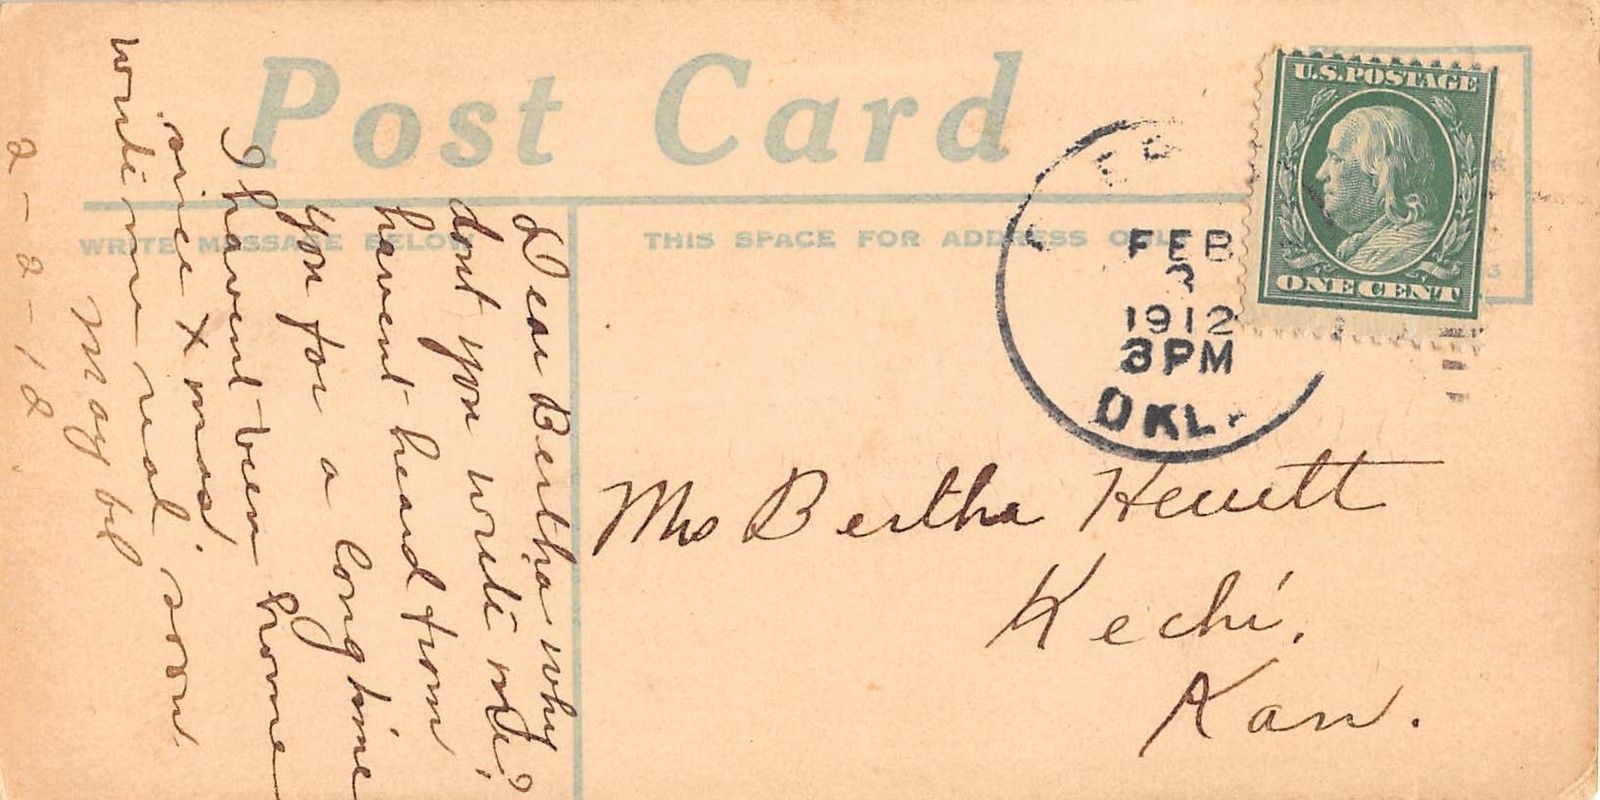 Post Card
WRITE MESSAGE BELOW
THIS SPACE FOR ADDRESS ONLY
U.S. POSTAGE
ONE CENT
FEB
3
1912
3 PM
OKLA
Dear Bertha why
dont you write me?
havent heard from
you for a long time
I havent been home
since Xmas.
write me real soon
Maybel
2-2-12
Mrs Bertha Hewett
Kechi,
Kan.